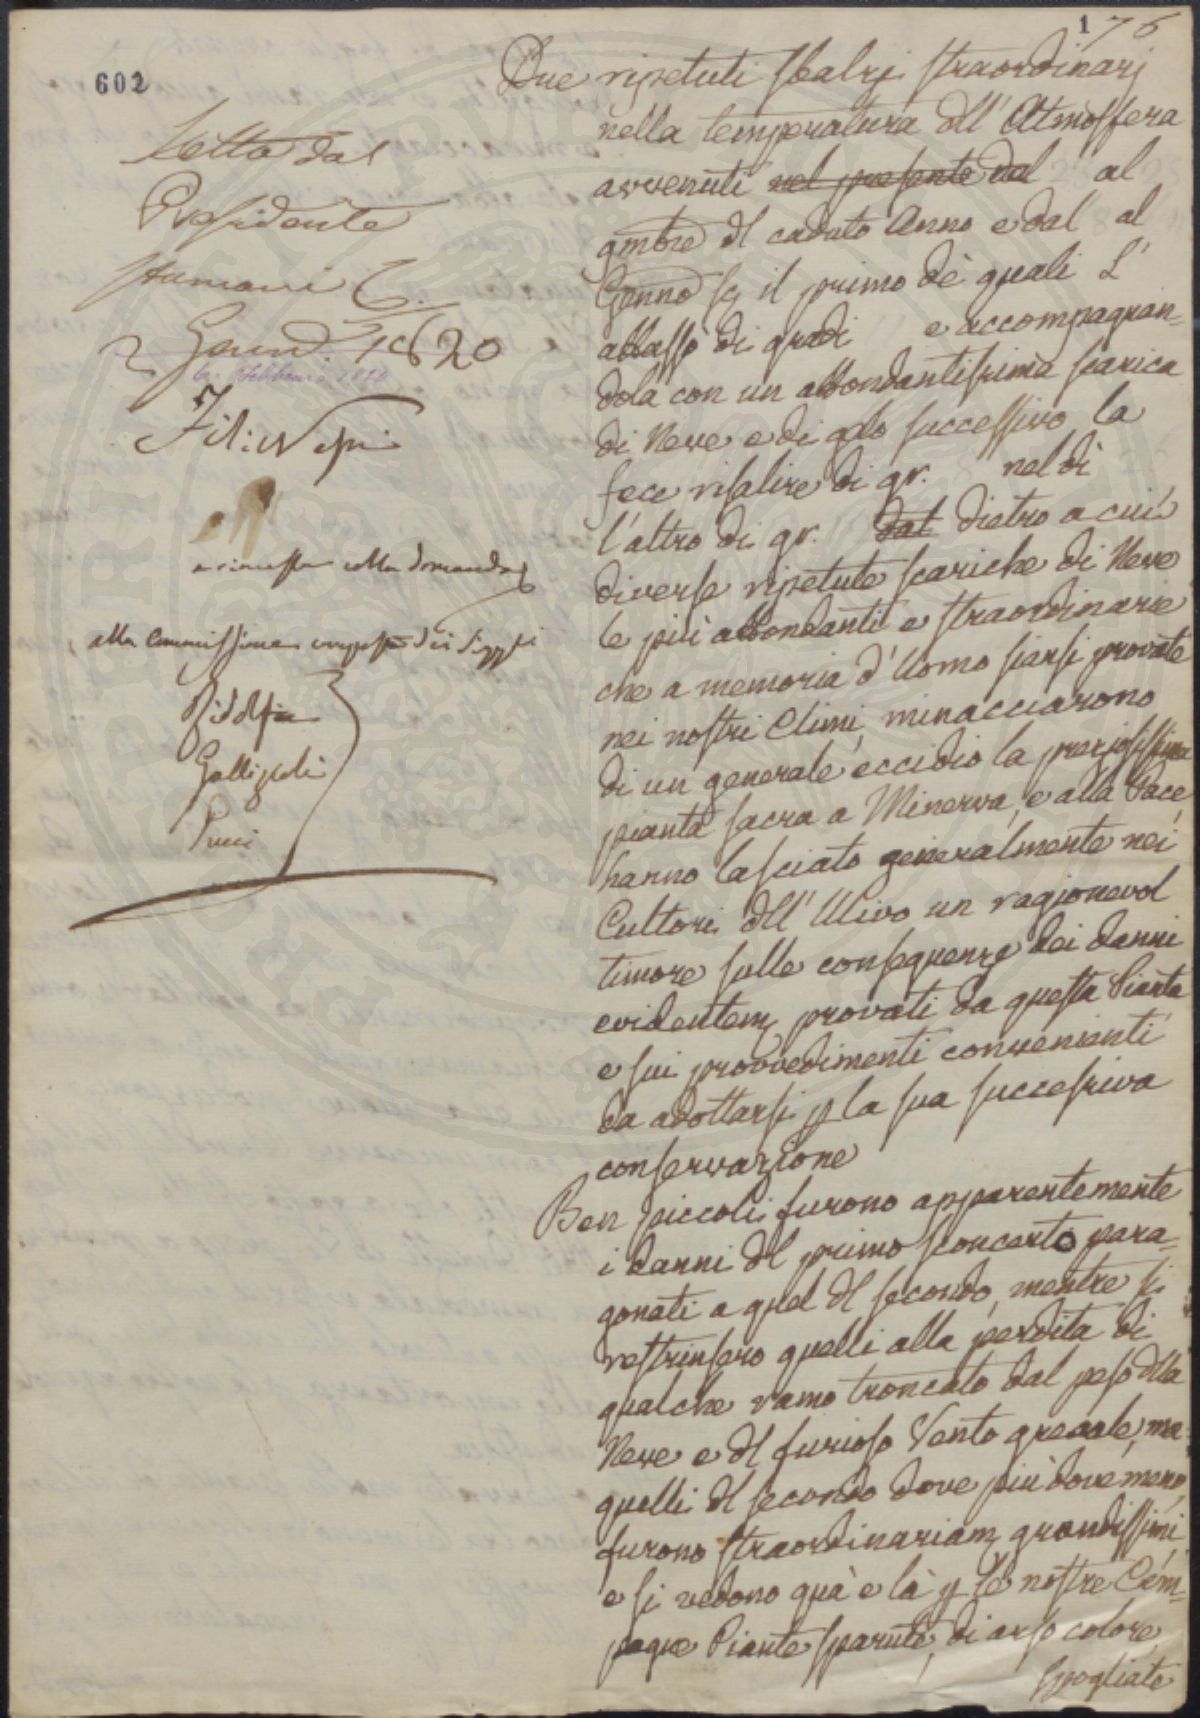 1
76
602
Letta dal
Presidente
2 Genn.° 1820
6. Febbraio 1820
alla Commissione composta dei Sigg.ri
Ridolfi
Gallizioli
Pucci
Due ripetuti sbalzi straordinarj
nella temperatura dell' Atmosfera
avvenuti nel presente dal al
gmbre del caduto Anno e dal al
Genno il primo de' quali L'
abbassò di gradi e accompagnan-
dola con un abbondantissima scarica
di Neve e di gelo successivo la
fece risalire di gr. nel dì
l'altro di gr. dal dietro a cui
diverse ripetute scariche di Neve
le più abbondanti e straordinarie
che a memoria d'Uomo siansi provate
nei nostri Climi, minacciarono
di un generale eccidio la preziosissima
pianta sacra a Minerva, e alla Pace,
hanno lasciato generalmente nei
Cultori dell' Ulivo un ragionevol
timore sulle conseguenze dei danni
evidentem provati da questa Pianta
e sui provvedimenti convenienti
da adottarsi p la sua successiva
conservazione
Ben piccoli furono apparentemente
i danni del primo sconcerto para-
gonati a quel del secondo, mentre si
restrinsero quelli alla perdita di
qualche ramo troncato dal peso della
Neve e del furioso Vento grecale, ma
quelli del secondo dove più dove meno,
furono straordinariam grandissimi
e si vedono quà e là p le nostre Cam-
pagne Piante sparute, di arso colore,
spogliate